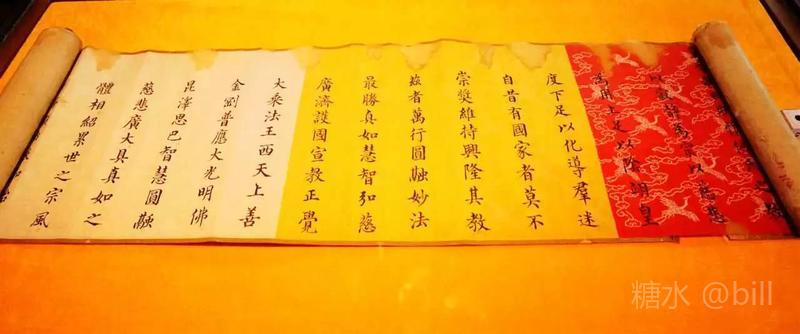 以寂靜為宗以慈悲
為用上足以陰翊皇
度下足以化導羣迷
自昔有國家者莫不
崇奬維持興隆其教
兹者萬行圓融妙法
最勝真如慧智弘慈
廣濟護國宣教正覺
大乘法王西天上善
金剛普應大光明佛
昆澤思巴智慧圓融
慈悲廣大具真如之
體相紹累世之宗風
糖水 @bill